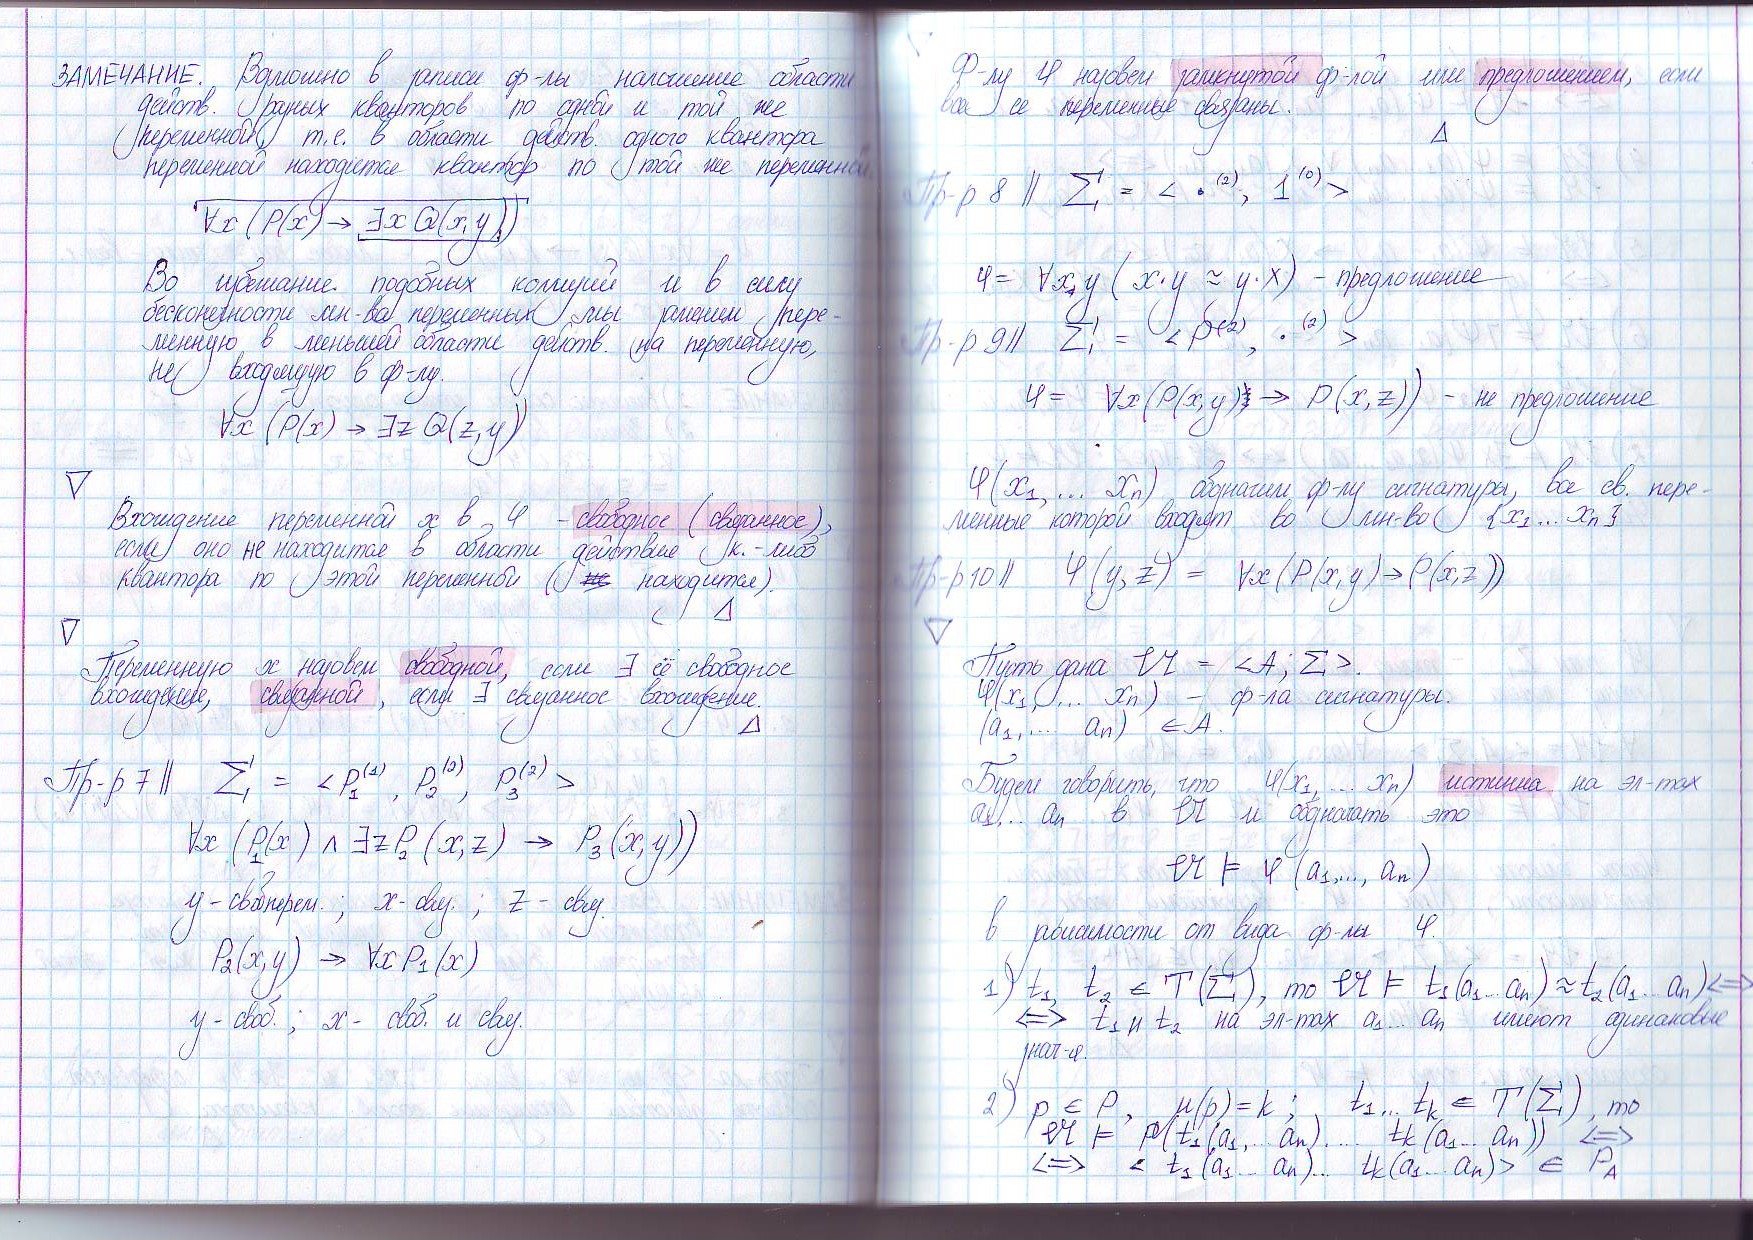 ЗАМЕЧАНИЕ. Возможно в записи ф-лы наложение области
действ. разных кванторов по одной и той же
переменной, т.е. в области действ. одного квантора
переменной находится квантор по той же переменной.
∀x (P(x) → ∃x Q(x,y))
Во избежание подобных коллизий и в силу
бесконечности мн-ва переменных мы заменим пере-
менную в меньшей области действ. на переменную,
не входящую в ф-лу.
∀x (P(x) → ∃z Q(z,y))
▽
Вхождение переменной x в φ - свободное (связанное),
если оно не находится в области действия к.-либо
квантора по этой переменной ( находится).
Δ
▽
Переменную x назовем свободной, если ∃ её свободное
вхождение, связанной, если ∃ связанное вхождение.
Δ
Пр-р 7 || Σ₁ = < P₁⁽¹⁾, P₂⁽²⁾, P₃⁽²⁾ >
∀x (P₁(x) ∧ ∃z P₂(x,z) → P₃(x,y))
y - своб. перем.; x - связ.; z - связ.
P₂(x,y) → ∀x P₁(x)
y - своб.; x - своб. и связ.
Ф-лу φ назовем замкнутой ф-лой или предложением, если
все её переменные связаны.
Δ
Пр-р 8 || Σ₁ = < ·⁽²⁾, 1⁽⁰⁾ >
φ = ∀x,y (x·y ≈ y·x) - предложение
Пр-р 9 || Σ₁ = < P⁽²⁾, ·⁽²⁾ >
φ = ∀x (P(x,y) → P(x,z)) - не предложение
φ(x₁, ... xₙ) обозначим ф-лу сигнатуры, все св. пере-
менные которой входят во мн-во {x₁ ... xₙ}
Пр-р 10 || φ(y,z) = ∀x (P(x,y) → P(x,z))
▽
Пусть дана 𝔄 = <A; Σ>.
φ(x₁, ... xₙ) - ф-ла сигнатуры.
(a₁, ... aₙ) ∈ A.
Будем говорить, что φ(x₁, ... xₙ) истинна на эл-тах
a₁ ... aₙ в 𝔄 и обозначать это
𝔄 ⊨ φ (a₁, ..., aₙ)
в зависимости от вида ф-лы φ.
1) t₁, t₂ ∈ T(Σ), то 𝔄 ⊨ t₁(a₁ ... aₙ) ≈ t₂(a₁ ... aₙ) <=>
<=> t₁ и t₂ на эл-тах a₁ ... aₙ имеют одинаковые
знач-я.
2) p ∈ P, μ(p) = k; t₁ ... tₖ ∈ T(Σ), то
𝔄 ⊨ p(t₁(a₁, ... aₙ) ... tₖ(a₁ ... aₙ)) <=>
<=> < t₁(a₁ ... aₙ) ... tₖ(a₁ ... aₙ) > ∈ P_A